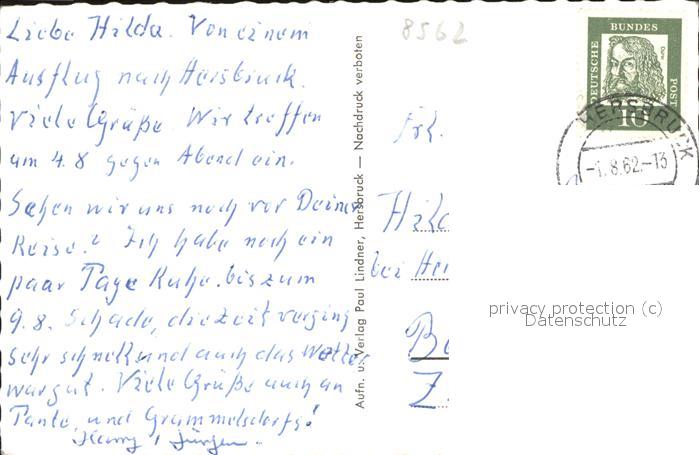 Liebe Hilda. Von einem
Ausflug nach Hersbruck.
Viele Grüße. Wir treffen
am 4.8 gegen Abend ein.
Sehen wir uns noch vor Deiner
Reise? Ich habe noch ein
paar Tage Ruhe. bis zum
9.8. Schade, die Zeit verging
sehr schnell und auch das Wetter
war gut. Viele Grüße auch an
Tante, und Grammelsdorfs!
Jürgen.
8562
Aufn. u. Verlag Paul Lindner, Hersbruck — Nachdruck verboten
DEUTSCHE BUNDES POST
Dürer
10
HERSBRUCK
-1.8.62.-13
Frl.
Hilda
bei
Z
privacy protection (c)
Datenschutz